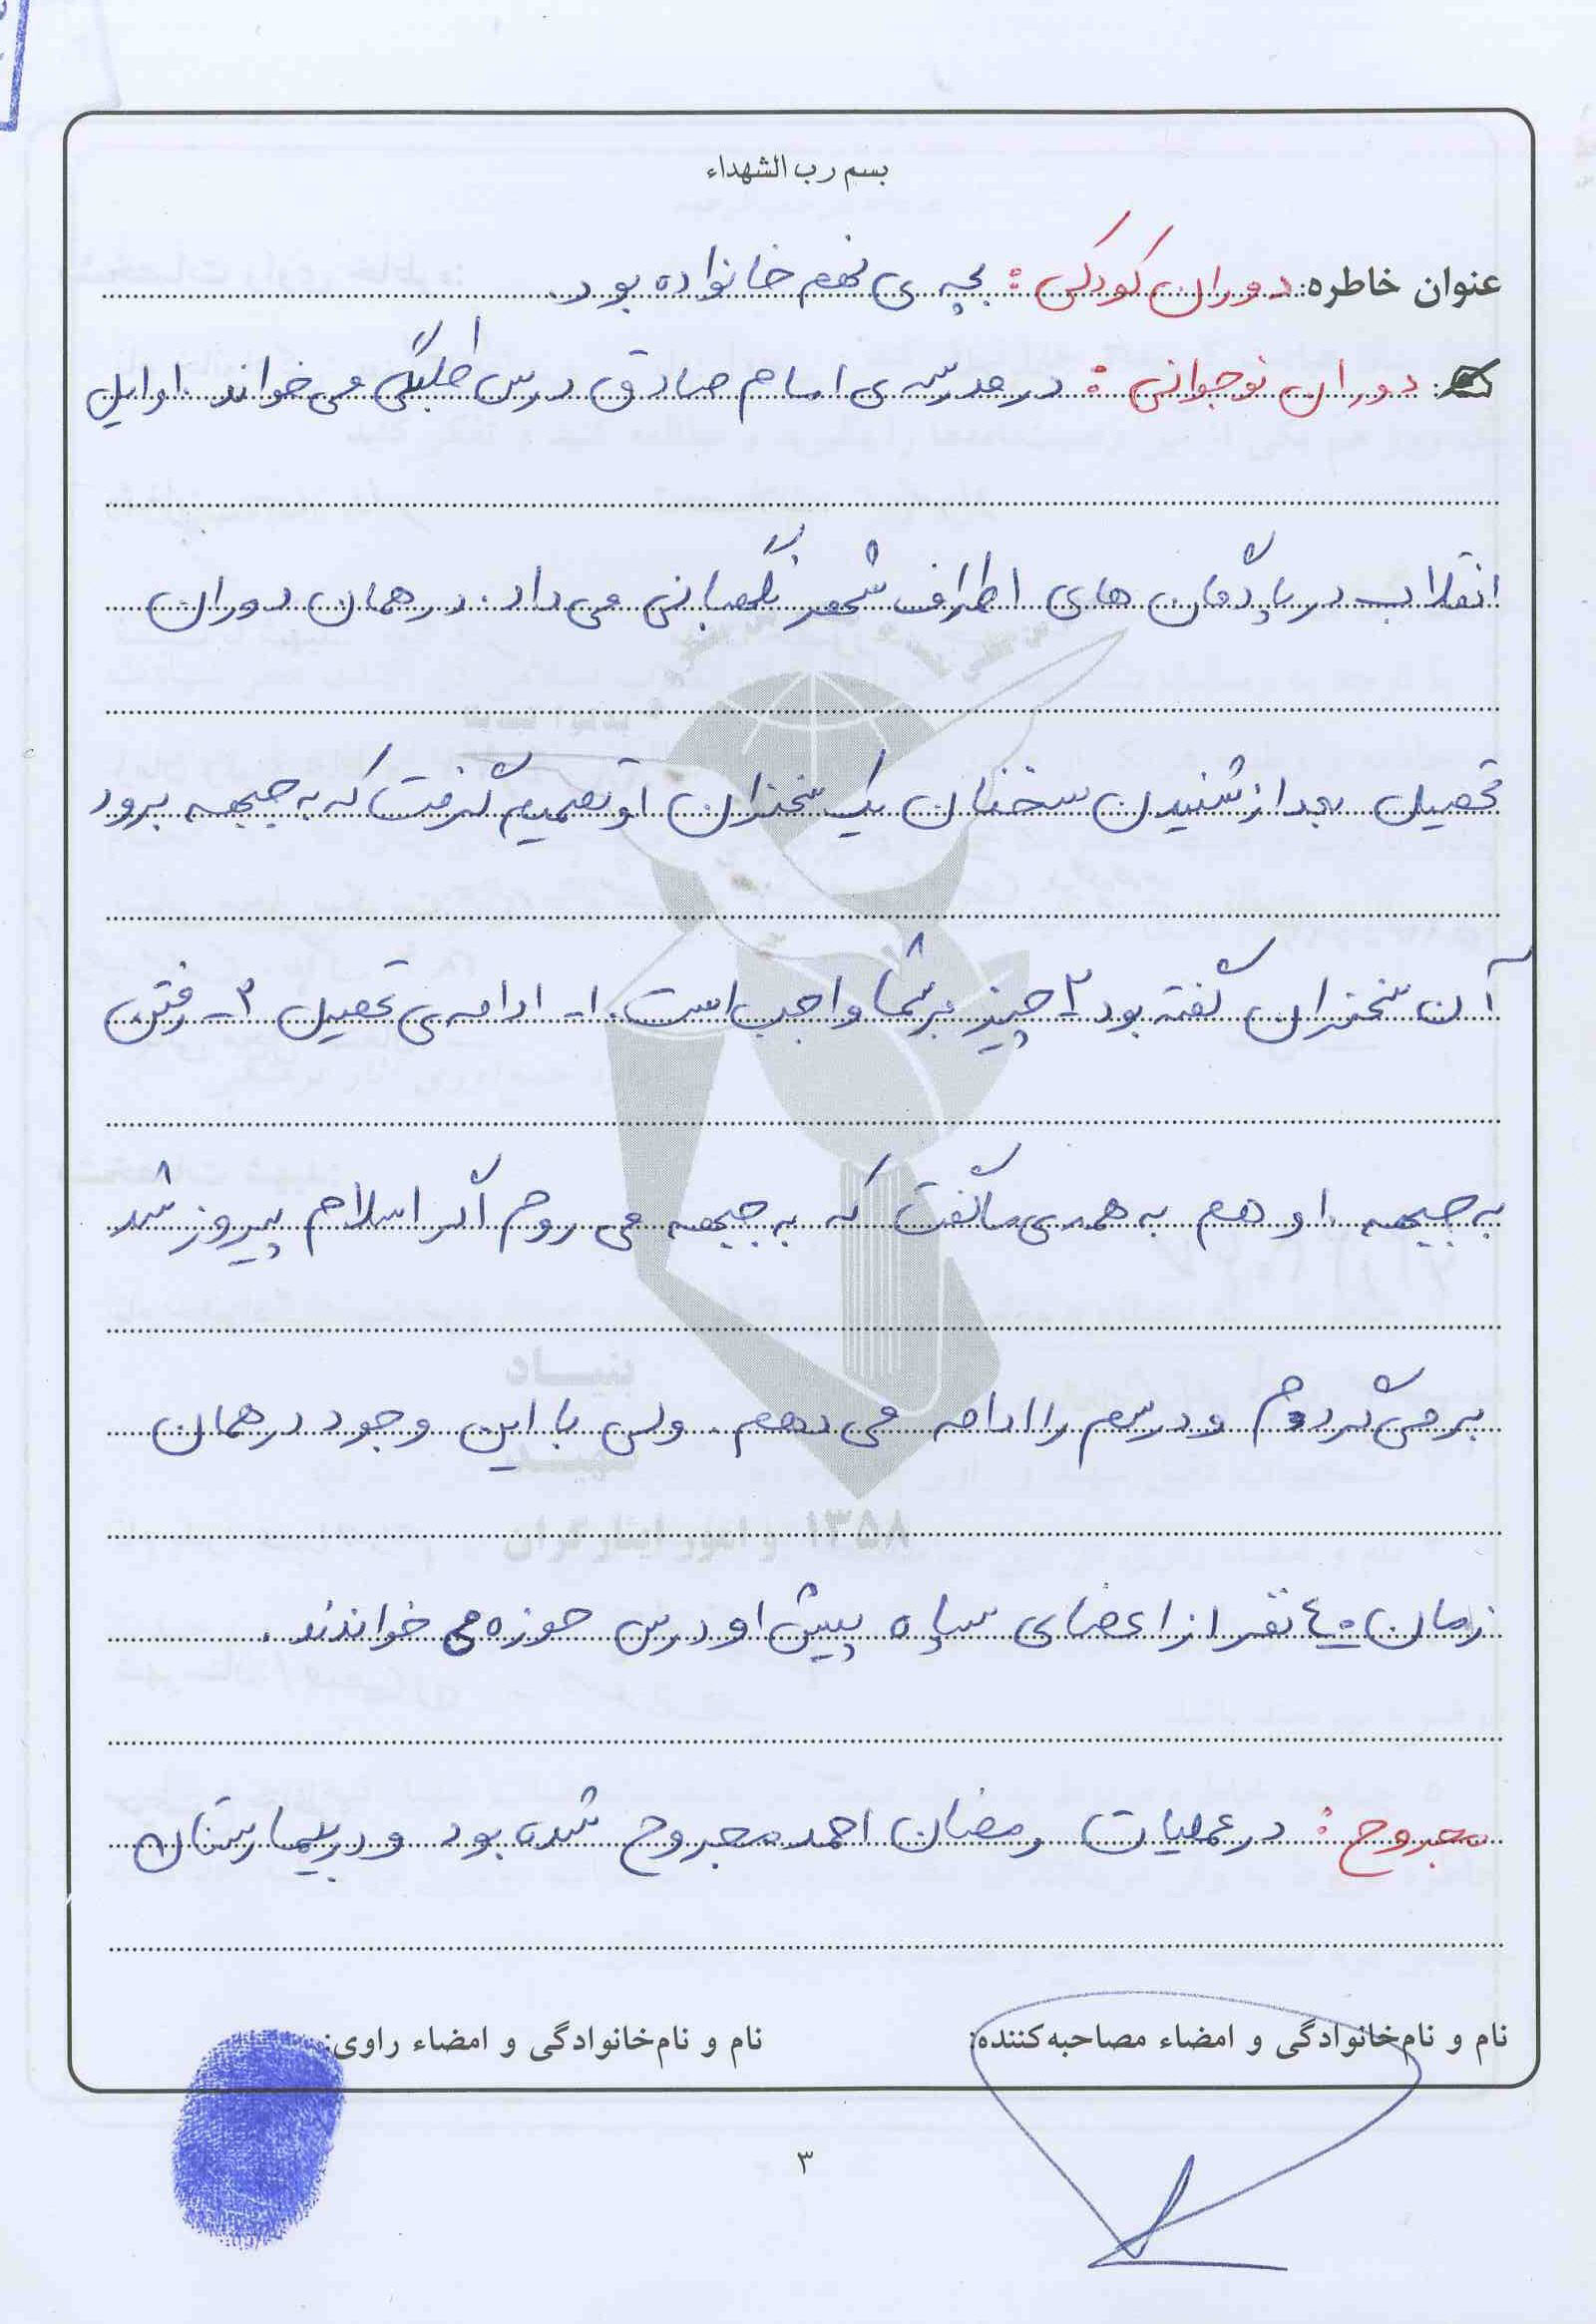 بسم رب الشهداء
عنوان خاطره: دوران کودکی: بچه ی نهم خانواده بود.
دوران نوجوانی: در مدرسه ی امام صادق درس طلبگی می خواند. اوایل
انقلاب در پادگان های اطراف شهر نگهبانی می داد. در همان دوران
تحصیل بعد از شنیدن سخنان یک سخنران او تصمیم گرفت که به جبهه برود
آن سخنران گفته بود ۲ چیز بر شما واجب است. ۱- ادامه ی تحصیل ۲- رفتن
به جبهه. او هم به همه ی ما گفت که به جبهه می روم اگر اسلام پیروز شد
بر می گردم و درسم را ادامه می دهم. ولی با این وجود در همان
زمان ٤۰ نفر از اعضای سپاه پیش او درس حوزه می خواندند.
مجروح: در عملیات رمضان احمد مجروح شده بود و در بیمارستان
نام و نام‌خانوادگی و امضاء مصاحبه‌کننده:
نام و نام‌خانوادگی و امضاء راوی:
۳
بنیاد
شهید
و امور ایثارگران
۱۳۵۸